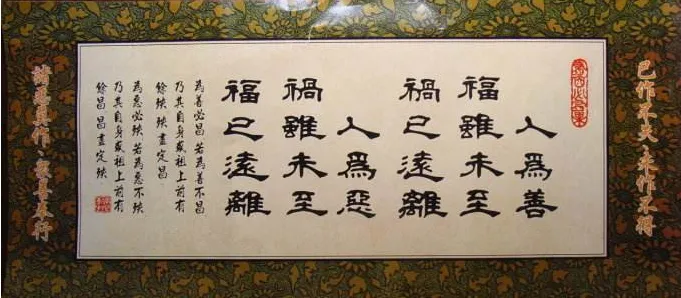 已作不失、未作不得
人爲善
福雖未至
禍已遠離
人爲惡
禍雖未至
福已遠離
為善必昌 若為善不昌
乃其自身或祖上前有
餘殃 殃盡定昌
為惡必殃 若為惡不殃
乃其自身或祖上前有
餘昌 昌盡定殃
諸惡莫作、衆善奉行